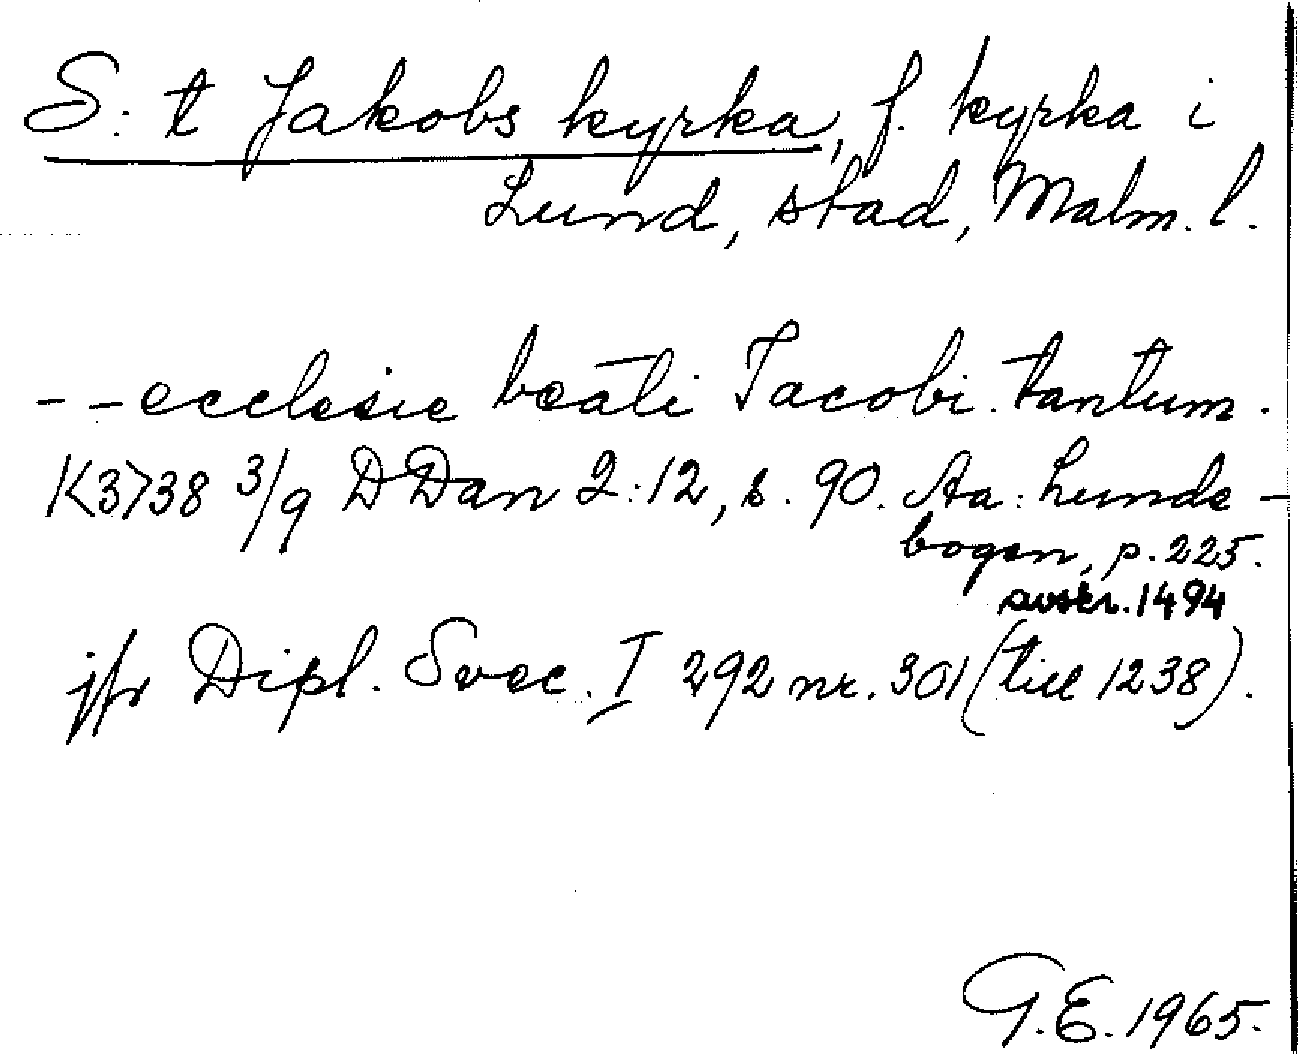 S:t Jakobs kyrka, f. kyrka i
Lund, stad, Malm. l.
- - ecclesie beāti Jacobi. tantum.
K3738 3/9 DDan 2:12, s. 90. Aa: Lunde-
bogen, p. 225.
avskr. 1494
jfr Dipl. Svec. I 292 nr. 301 (till 1238).
G.E. 1965.